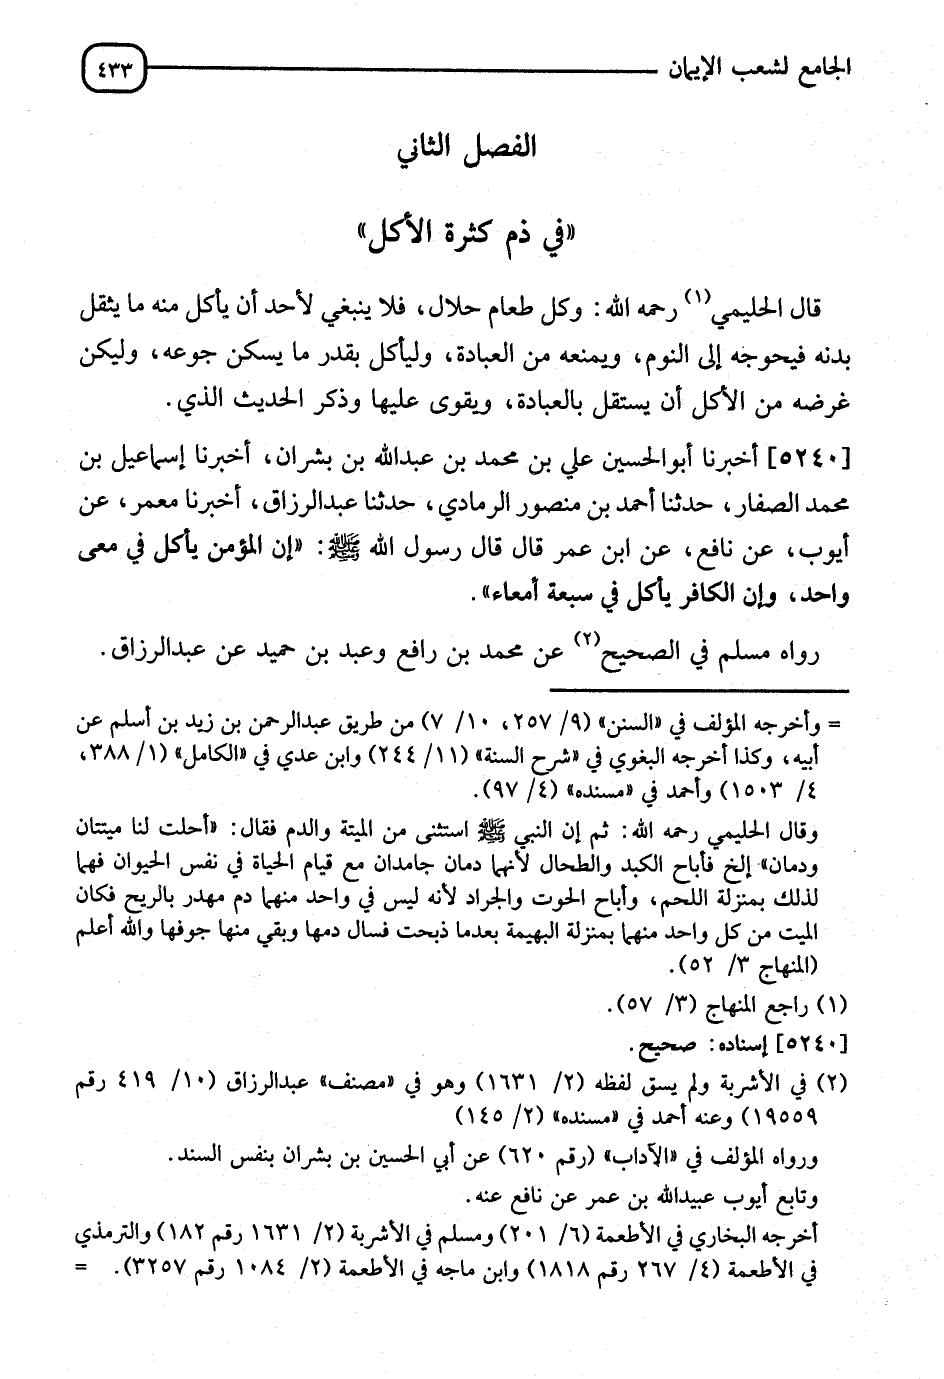 الجامع لشعب الإيمان ٤٣٣
الفصل الثاني
«في ذم كثرة الأكل»
قال الحليمي(١) رحمه الله: وكل طعام حلال، فلا ينبغي لأحد أن يأكل منه ما يثقل
بدنه فيحوجه إلى النوم، ويمنعه من العبادة، وليأكل بقدر ما يسكن جوعه، وليكن
غرضه من الأكل أن يستقل بالعبادة، ويقوى عليها وذكر الحديث الذي.
[٥٢٤٠] أخبرنا أبوالحسين علي بن محمد بن عبدالله بن بشران، أخبرنا إسماعيل بن
محمد الصفار، حدثنا أحمد بن منصور الرمادي، حدثنا عبدالرزاق، أخبرنا معمر، عن
أيوب، عن نافع، عن ابن عمر قال قال رسول الله ﷺ: «إن المؤمن يأكل في معى
واحد، وإن الكافر يأكل في سبعة أمعاء».
رواه مسلم في الصحيح(٢) عن محمد بن رافع وعبد بن حميد عن عبدالرزاق.
= وأخرجه المؤلف في «السنن» (٩/ ٢٥٧، ١٠/ ٧) من طريق عبدالرحمن بن زيد بن أسلم عن
أبيه، وكذا أخرجه البغوي في «شرح السنة» (١١/ ٢٤٤) وابن عدي في «الكامل» (١/ ٣٨٨،
٤/ ١٥٠٣) وأحمد في «مسنده» (٤/ ٩٧).
وقال الحليمي رحمه الله: ثم إن النبي ﷺ استثنى من الميتة والدم فقال: «أحلت لنا ميتتان
ودمان» إلخ فأباح الكبد والطحال لأنهما دمان جامدان مع قيام الحياة في نفس الحيوان فهما
لذلك بمنزلة اللحم، وأباح الحوت والجراد لأنه ليس في واحد منهما دم مهدر بالريح فكان
الميت من كل واحد منهما بمنزلة البهيمة بعدما ذبحت فسال دمها وبقي منها جوفها والله أعلم
(المنهاج ٣/ ٥٢).
(١) راجع المنهاج (٣/ ٥٧).
[٥٢٤٠] إسناده: صحيح.
(٢) في الأشربة ولم يسق لفظه (٢/ ١٦٣١) وهو في «مصنف» عبدالرزاق (١٠/ ٤١٩ رقم
١٩٥٥٩) وعنه أحمد في «مسنده» (٢/ ١٤٥)
ورواه المؤلف في «الآداب» (رقم ٦٢٠) عن أبي الحسين بن بشران بنفس السند.
وتابع أيوب عبيدالله بن عمر عن نافع عنه.
أخرجه البخاري في الأطعمة (٦/ ٢٠١) ومسلم في الأشربة (٢/ ١٦٣١ رقم ١٨٢) والترمذي
في الأطعمة (٤/ ٢٦٧ رقم ١٨١٨) وابن ماجه في الأطعمة (٢/ ١٠٨٤ رقم ٣٢٥٧). =